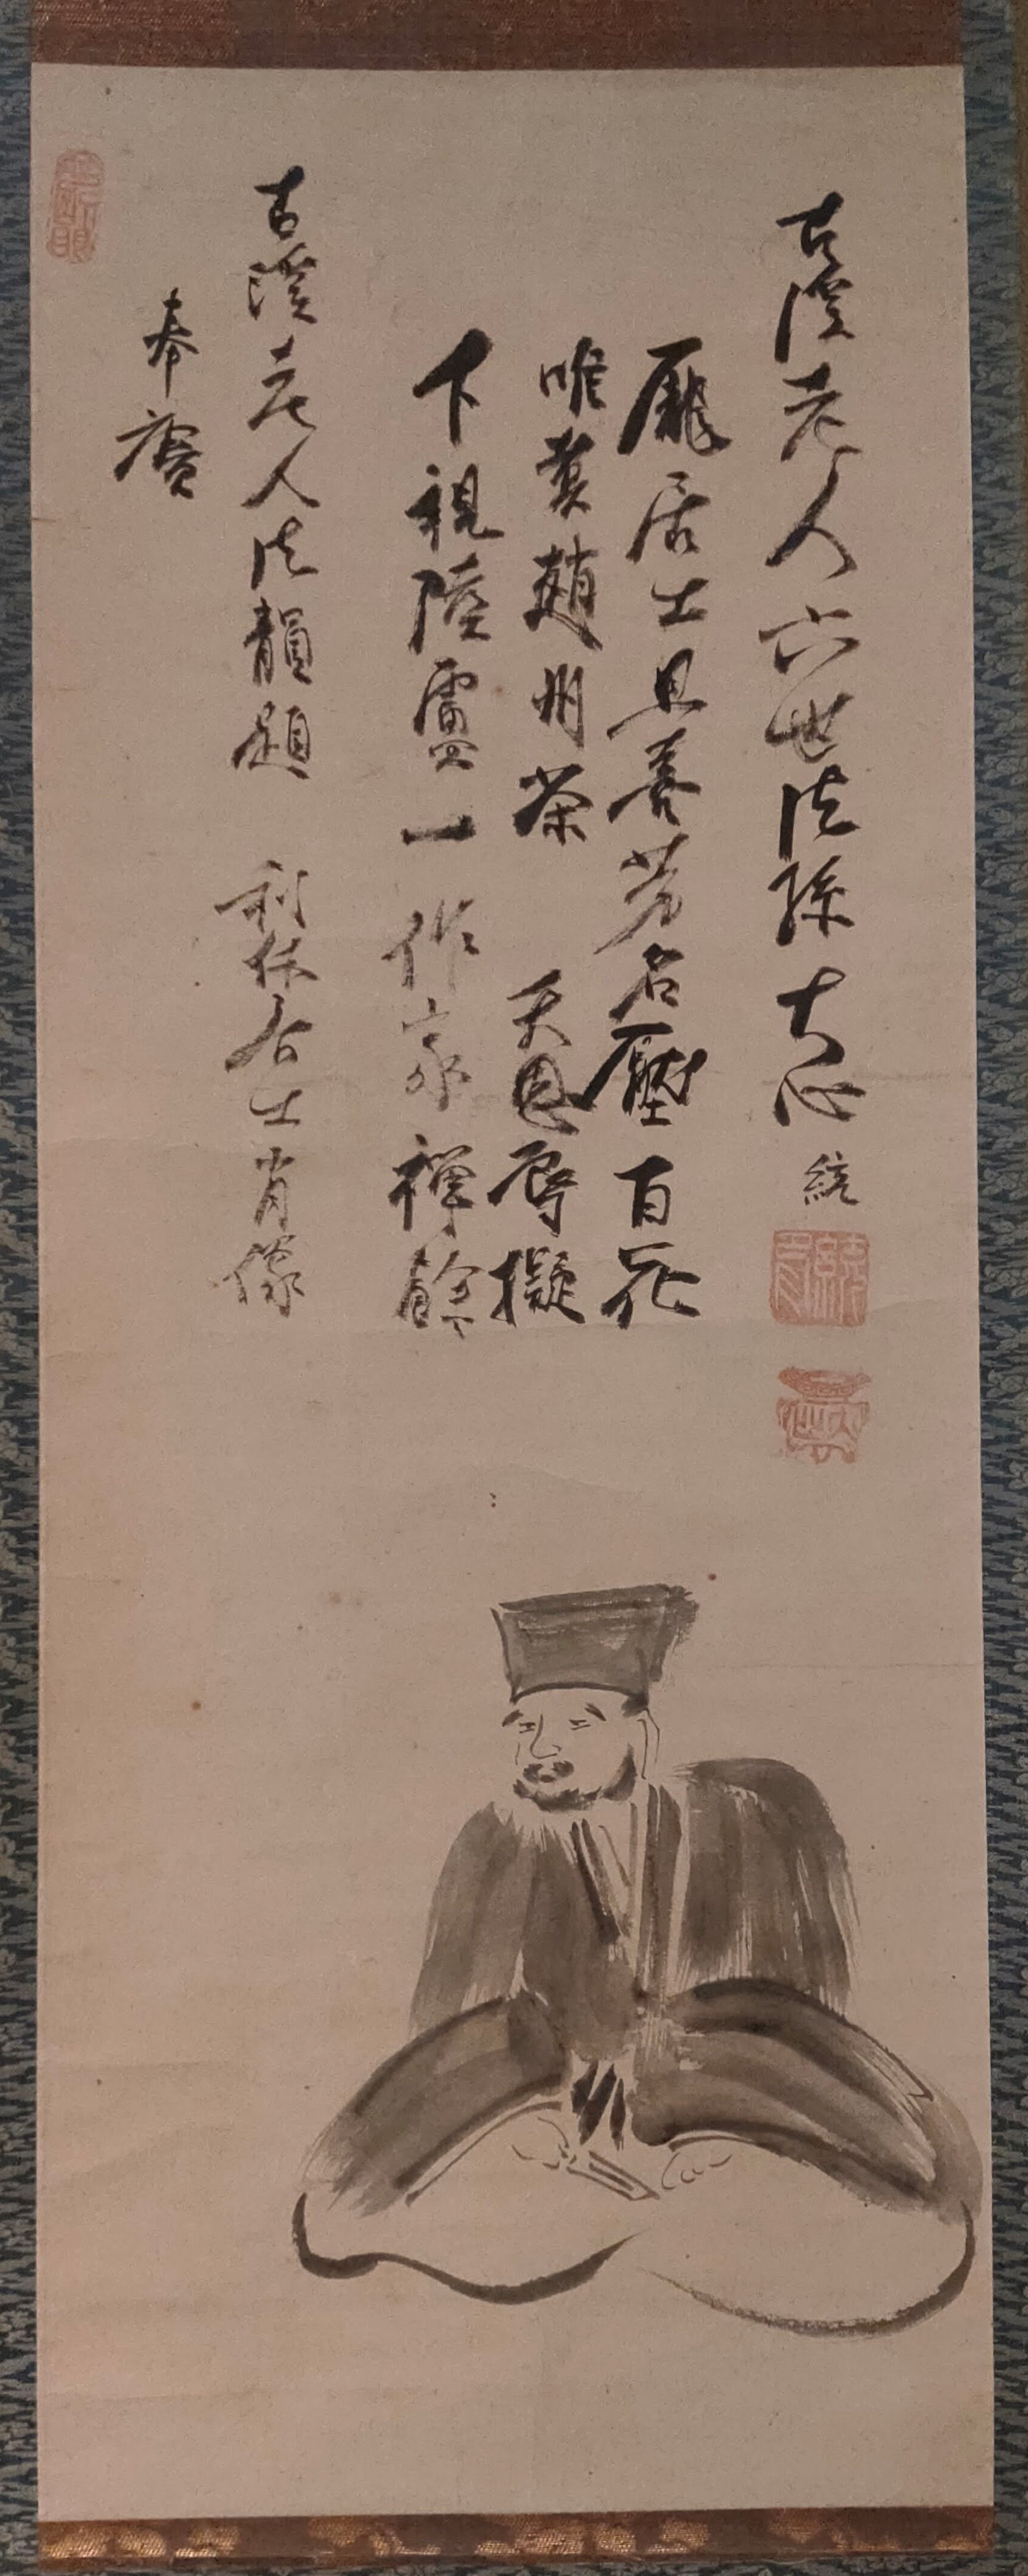 奉賡
古溪老人法韻題　利休居士肖像
下視陸盧一作家禅餘
唯奠趙州茶　天恩辱擬
龐居士且善芳名壓百花
古溪老人六世法孫大心統